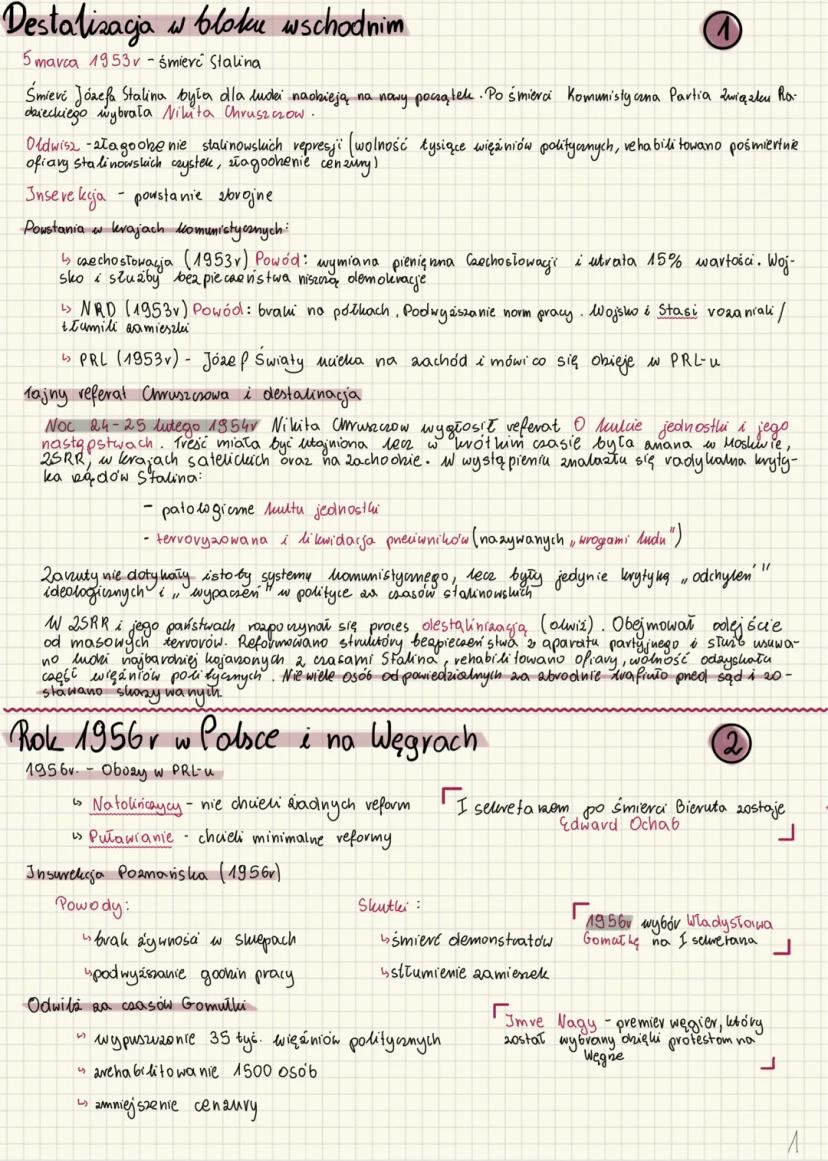 Destalizacja w bloku wschodnim
1
5 marca 1953r - śmierć Stalina
Śmierć Józefa Stalina była dla ludzi nadzieją na nowy początek. Po śmierci Komunistyczna Partia Związku Ra-
dzieckiego wybrała Nikita Chruszczow.
Oldwisz - złagodzenie stalinowskich represji (wolność tysiące więźniów politycznych, rehabilitowano pośmiertnie
ofiary stalinowskich czystek, złagodzenie cenzury)
Inserekcja - powstanie zbrojne
Powstania w krajach komunistycznych:
↳ czechosłowacja (1953r) Powód: wymiana pieniężna Czechosłowacji i utrata 15% wartości. Woj-
sko i służby bezpieczeństwa niszczą demokracje
↳ NRD (1953r) Powód: braki na półkach. Podwyższanie norm pracy. Wojsko i Stasi rozaniali/
tłumili zamieszki
↳ PRL (1953r) - Józef Światy ucieka na zachód i mówi co się dzieje w PRL-u
Tajny referat Chruszczowa i destalinacja
Noc 24-25 lutego 1954r Nikita Chruszczow wygłosił referat O kulcie jednostki i jego
następstwach. Treść miała być utajniona lecz w krótkim czasie była znana w Moskwie,
ZSRR, w krajach satelickich oraz na zachodzie. W wystąpieniu znalazła się radykalna kryty-
ka rządów Stalina:
- patologiczne kultu jednostki
- terroryzowana i likwidacja przeciwników (nazywanych „wrogami ludu")
Zarzuty nie dotykały istoty systemu komunistycznego, lecz były jedynie krytyką „odchyleń"
ideologicznych i „wypaczeń" w polityce za czasów stalinowskich
W ZSRR i jego państwach rozpoczynał się proces destalinizacją (odwiż). Obejmował odejście
od masowych terrorów. Reformowano struktóry bezpieczeństwa z aparatu partyjnego i służb usuwa-
no ludzi najbardziej kojarzonych z czasami Stalina, rehabilitowano ofiary, wolność odzyskała
część więźniów politycznych. Niewiele osób odpowiedzialnych za zbrodnie trafiło przed sąd i zo-
stawano skazywanych.
Rok 1956r w Polsce i na Węgrach
2
1956r. - Obozy w PRL-u
↳ Natolińczycy - nie chcieli żadnych reform
↳ Puławianie - chcieli minimalne reformy
I sekretarzem po śmierci Bieruta zostaje
Edward Ochab
Insurekcja Poznańska (1956r)
Powody:
↳ brak żywności w sklepach
↳ podwyższanie godzin pracy
Skutki:
↳ śmierć demonstratów
↳ stłumienie zamieszek
1956r wybór Władysłowa
Gomułkę na I sekretarza
Odwilż za czasów Gomułki
↳ wypuszczonie 35 tyś. więźniów politycznych
↳ zrehabilitowanie 1500 osób
↳ zmniejszenie cenzury
Imre Nagy - premier węgier, który
został wybrany dzięki protestom na
Węgrze
1